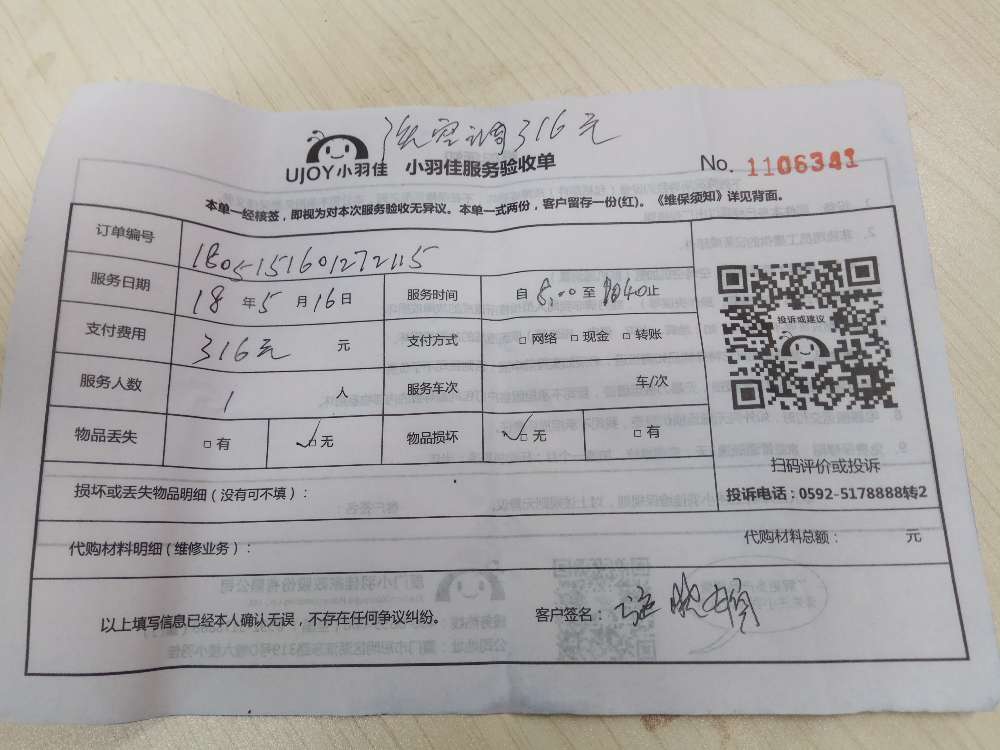 洗空调316元
UJOY小羽佳 小羽佳服务验收单 No. 1106341
本单一经核签，即视为对本次服务验收无异议。本单一式两份，客户留存一份(红)。《维保须知》详见背面。
订单编号 1805151601272115
服务日期 18 年 5 月 16 日 服务时间 自 8:00 至 止
支付费用 316元 元 支付方式 □ 网络 □ 现金 □ 转账
服务人数 1 人 服务车次 车/次
物品丢失 □ 有 ✓□ 无 物品损坏 ✓□ 无 □ 有
投诉或建议
扫码评价或投诉
投诉电话：0592-5178888转2
损坏或丢失物品明细（没有可不填）：
代购材料明细（维修业务）： 代购材料总额： 元
以上填写信息已经本人确认无误，不存在任何争议纠纷。 客户签名：